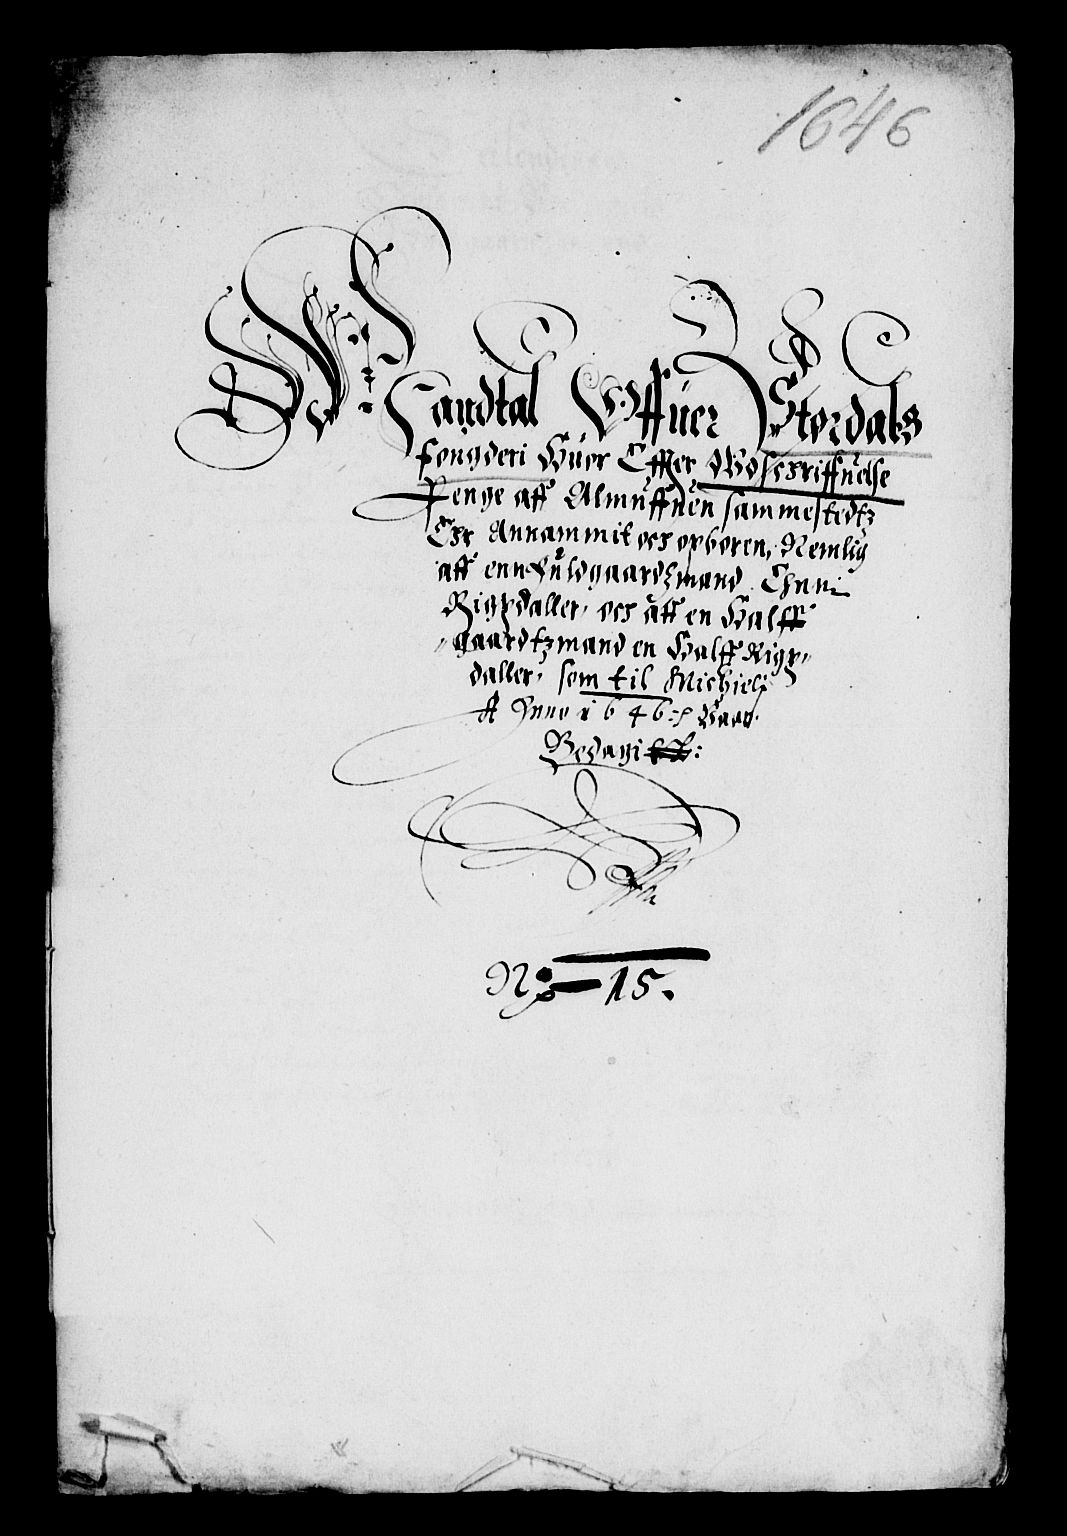 1646
Mandtal Offuer Størdals
fongderi Huor Effter Udschriffuelse
Penge aff Almuffuen sammestedtz
Ehr Annammit och opboren, Nemlig
aff enn fuldgaardtzmand Ehnn
Rigzdaller, och aff en Halff
gaardtzmand en Halff Rigz-
daller, som til Michielj
Anno 1646 Vaar
Bedagit:
No 15.